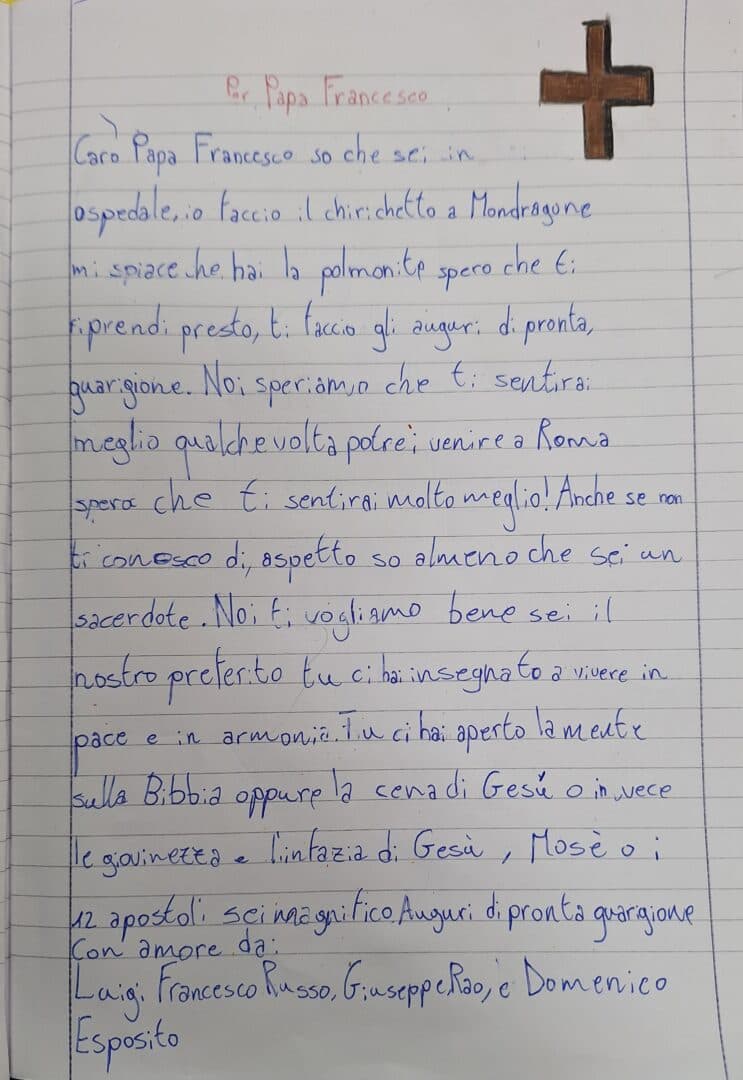 Per Papa Francesco
Caro Papa Francesco so che sei in
ospedale, io faccio il chirichetto a Mondragone
mi spiace che hai la polmonite spero che ti
riprendi presto, ti faccio gli auguri di pronta,
guarigione. Noi speriamo che ti sentirai
meglio qualche volta potrei venire a Roma
spero che ti sentirai molto meglio! Anche se non
ti conosco di, aspetto so almeno che sei un
sacerdote. Noi ti vogliamo bene sei il
nostro preferito tu ci hai insegnato a vivere in
pace e in armonia. Tu ci hai aperto la mente
sulla Bibbia oppure la cena di Gesú o in vece
le giovinezza e l'infazia di Gesù, Mosè o i
12 apostoli sei magnifico Auguri di pronta guarigione
Con amore da:
Luigi, Francesco Russo, Giuseppe Rao, e Domenico
Esposito